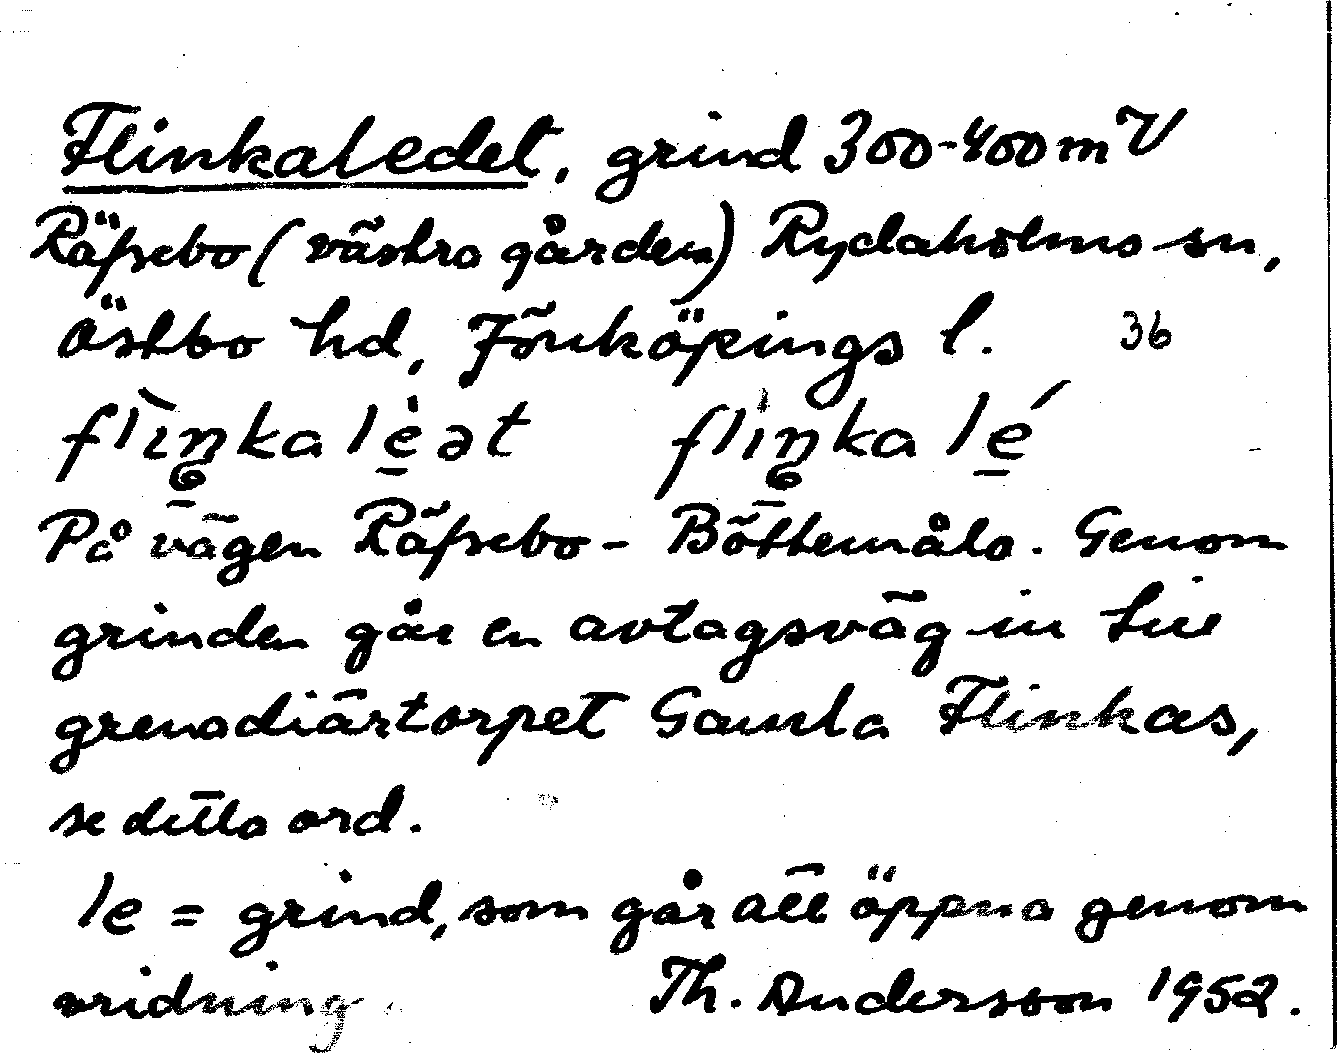 Flinkaledet, grind 300-400 m V
Räfsebo (västra gården) Rydaholms sn,
Östbo hd, Jönköpings l. 36
flìŋkaléət flìŋkalé
På vägen Räfsebo - Böttemåla. Genom
grinden går en avtagsväg in till
grenadiärtorpet Gamla Flinkas,
se detta ord.
le = grind, som går att öppna genom
vridning. Th. Andersson 1952.